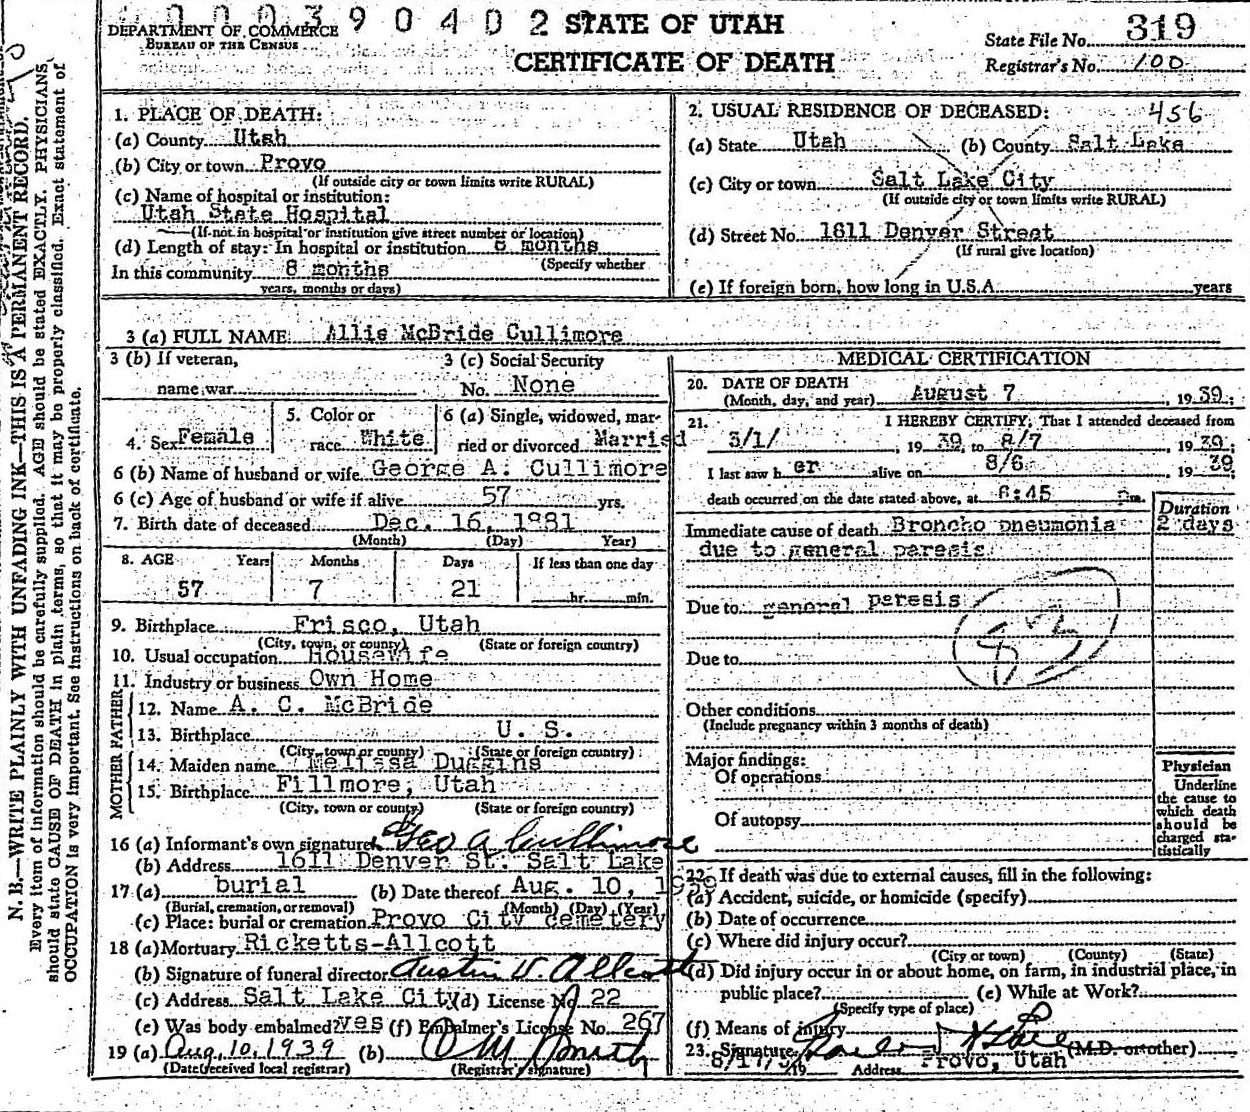 0000390402
DEPARTMENT OF COMMERCE
BUREAU OF THE CENSUS
STATE OF UTAH
CERTIFICATE OF DEATH
State File No. 319
Registrar's No. 100
N. B.—WRITE PLAINLY WITH UNFADING INK—THIS IS A PERMANENT RECORD.
Every item of information should be carefully supplied. AGE should be stated EXACTLY. PHYSICIANS
should state CAUSE OF DEATH in plain terms, so that it may be properly classified. Exact statement of
OCCUPATION is very important. See instructions on back of certificate.
1. PLACE OF DEATH:
(a) County Utah
(b) City or town Provo
(If outside city or town limits write RURAL)
(c) Name of hospital or institution:
Utah State Hospital
(If not in hospital or institution give street number or location)
(d) Length of stay: In hospital or institution 8 months
(Specify whether
In this community 8 months
years, months or days)
2. USUAL RESIDENCE OF DECEASED: 456
(a) State Utah (b) County Salt Lake
(c) City or town Salt Lake City
(If outside city or town limits write RURAL)
(d) Street No. 1611 Denver Street
(If rural give location)
(e) If foreign born, how long in U.S.A. years
3 (a) FULL NAME Allis McBride Cullimore
3 (b) If veteran,
name war
3 (c) Social Security
No. None
4. Sex Female
5. Color or
race White
6 (a) Single, widowed, mar-
ried or divorced Married
6 (b) Name of husband or wife George A. Cullimore
6 (c) Age of husband or wife if alive 57 yrs.
7. Birth date of deceased Dec. 16, 1881
(Month) (Day) Year)
8. AGE Years Months Days If less than one day
57 7 21 hr. min.
9. Birthplace Frisco, Utah
(City, town, or county) (State or foreign country)
10. Usual occupation Housewife
11. Industry or business Own Home
FATHER
12. Name A. C. McBride
13. Birthplace U. S.
(City, town or county) (State or foreign country)
MOTHER
14. Maiden name Melissa Duggins
15. Birthplace Fillmore, Utah
(City, town or county) (State or foreign country)
16 (a) Informant's own signature Geo A Cullimore
(b) Address 1611 Denver St. Salt Lake
17 (a) burial (b) Date thereof Aug. 10, 1939
(Burial, cremation, or removal) (Month) (Day) (Year)
(c) Place: burial or cremation Provo City cemetery
18 (a) Mortuary Ricketts-Allcott
(b) Signature of funeral director Austin W. Allcott
(c) Address Salt Lake City (d) License No 22
(e) Was body embalmed? yes (f) Embalmer's License No. 267
19 (a) Aug, 10, 1939 (b)
(Date received local registrar) (Registrar's signature)
MEDICAL CERTIFICATION
20. DATE OF DEATH
(Month, day, and year) August 7, 1939;
21. I HEREBY CERTIFY, That I attended deceased from
3/1/, 1939 to 8/7, 1939,
I last saw her alive on 8/6 1939;
death occurred on the date stated above, at 6:45 m.
Duration
Immediate cause of death Broncho pneumonia 2 days
due to general paresis
Due to general paresis
83
Due to
Other conditions
(Include pregnancy within 3 months of death)
Major findings:
Of operations
Of autopsy
Physician
Underline
the cause to
which death
should be
charged sta-
tistically
22. If death was due to external causes, fill in the following:
(a) Accident, suicide, or homicide (specify)
(b) Date of occurrence
(c) Where did injury occur?
(City or town) (County) (State)
(d) Did injury occur in or about home, on farm, in industrial place, in
public place? (e) While at Work?
(Specify type of place)
(f) Means of injury
23. Signature (M.D. or other)
8/17/39 19 Address Provo, Utah